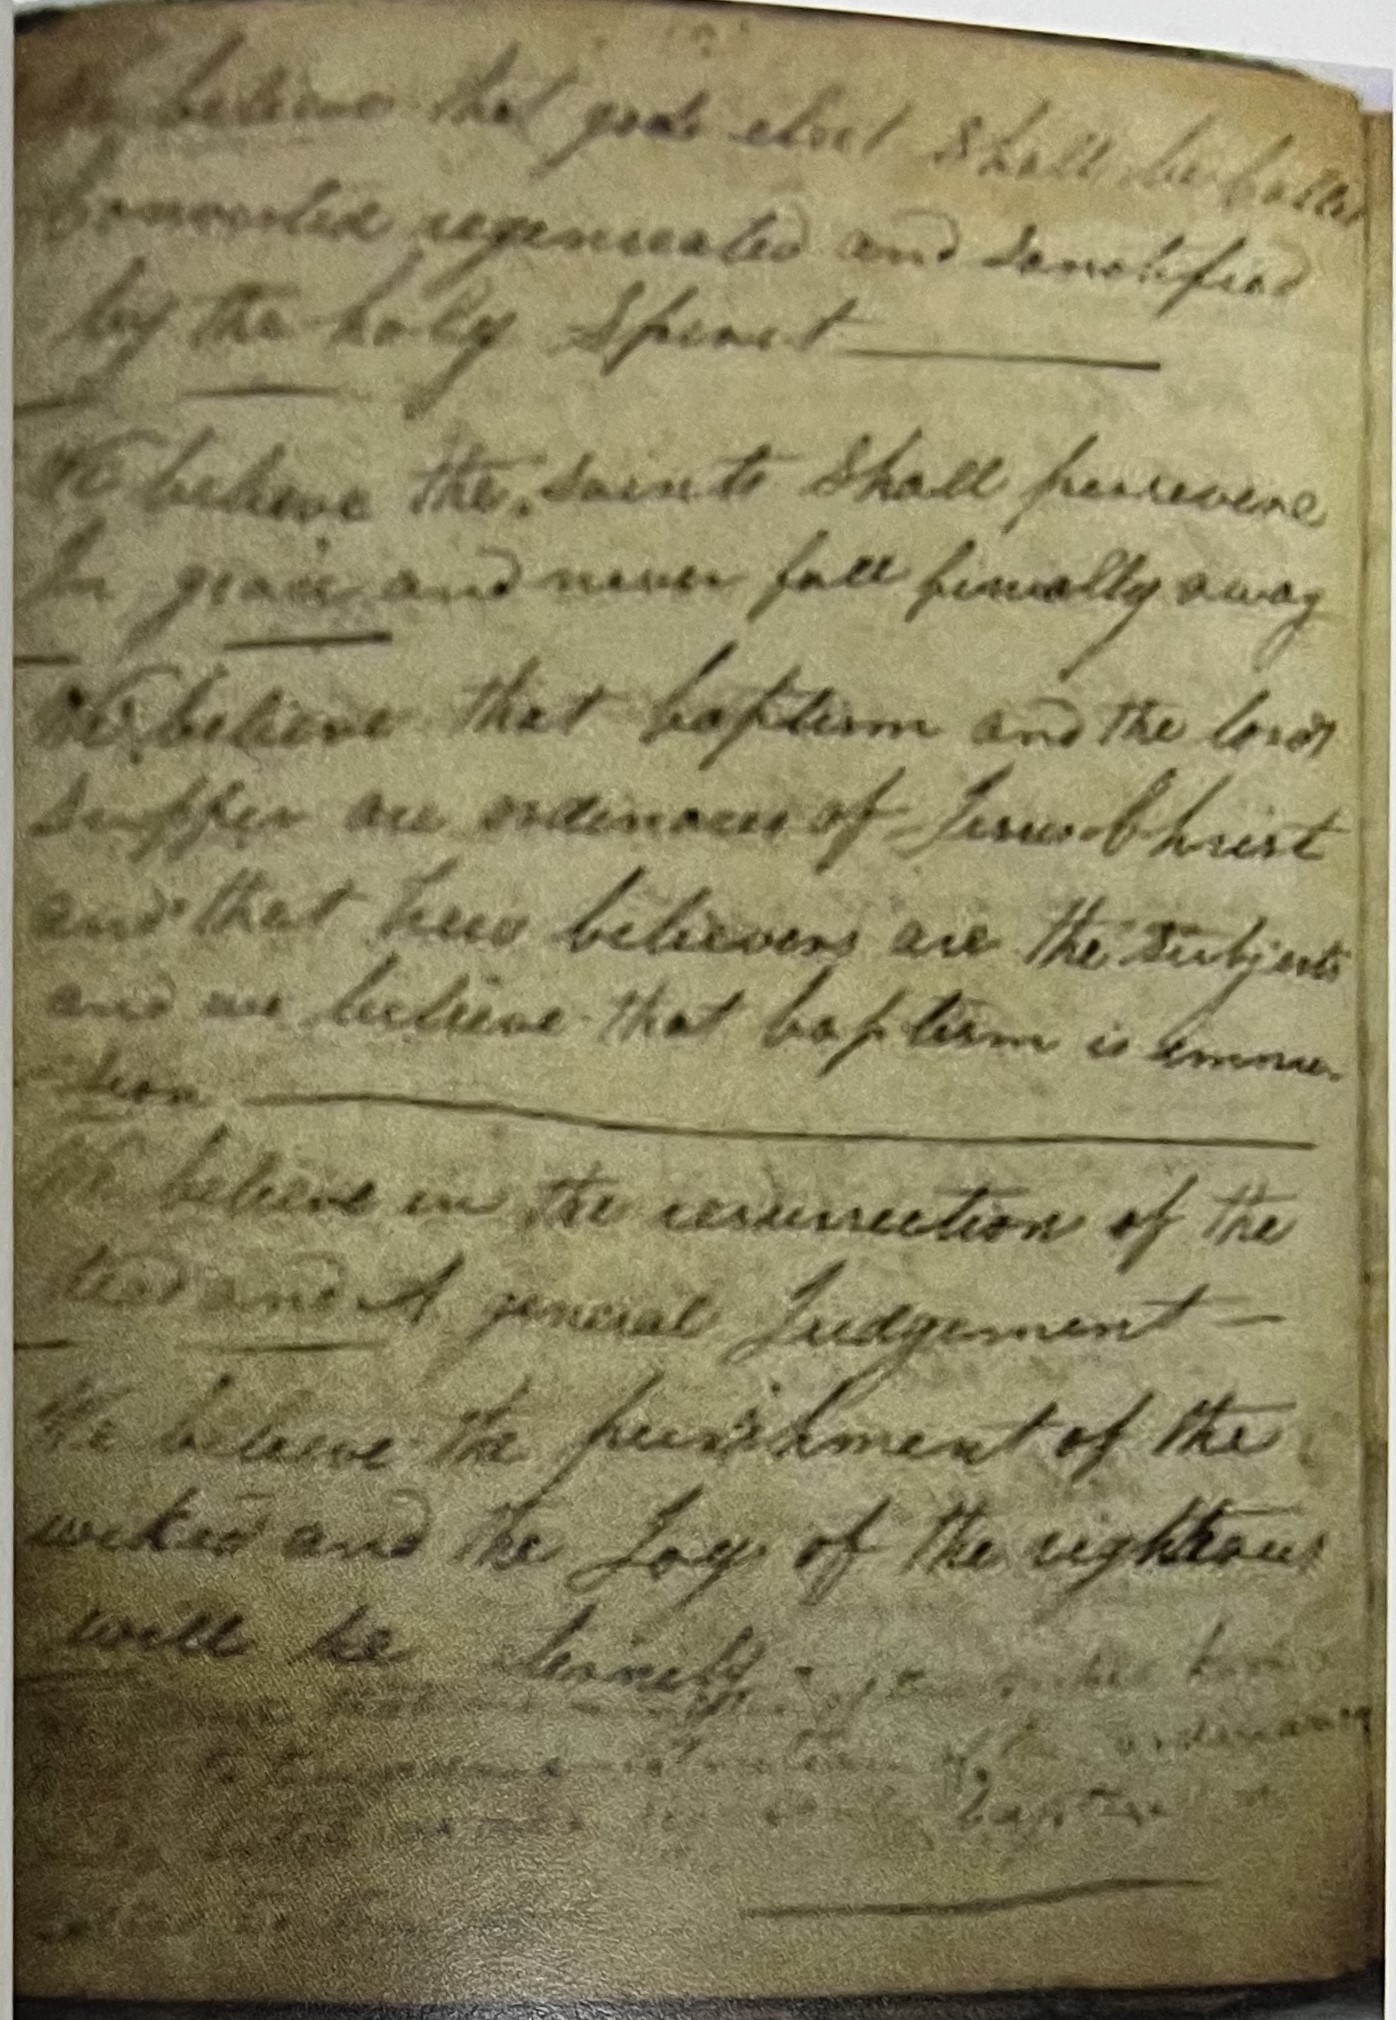 We believe that gods elect shall be called
Converted regenerated and Sanctified
by the holy Spirit
We believe the saints shall persevere
In grace and never fall finally away
We believe that baptism and the lords
Supper are ordinances of Jesus Christ
and that true believers are the subjects
and we believe that baptism is immer-
sion
We believe in the resurrection of the
dead and A general Judgement
We believe the punishment of the
wicked and the Joy of the righteous
will be
of the ordinances